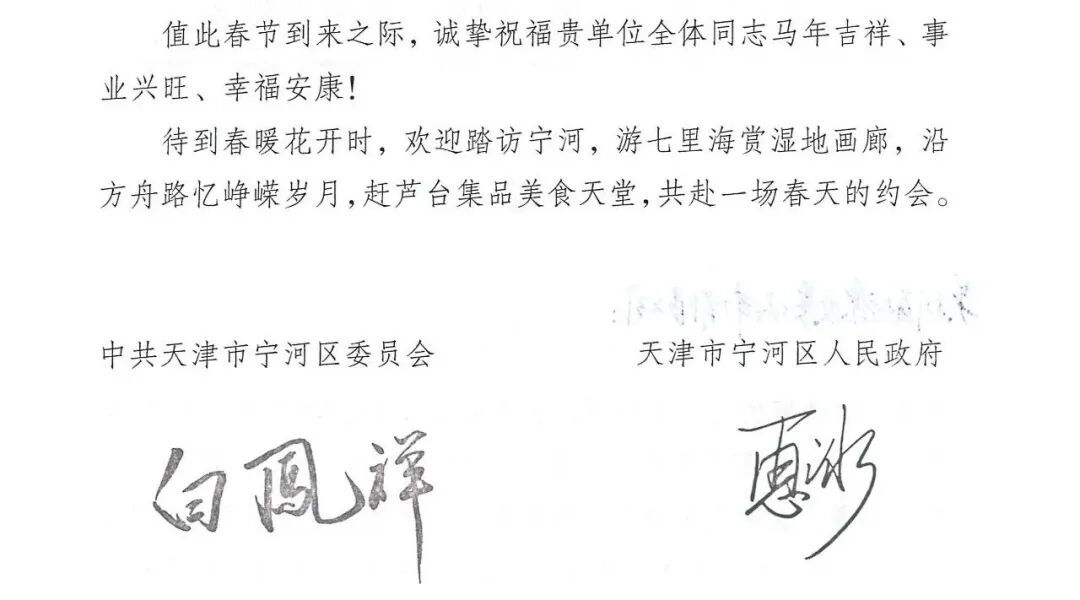 值此春节到来之际，诚挚祝福贵单位全体同志马年吉祥、事
业兴旺、幸福安康！
待到春暖花开时，欢迎踏访宁河，游七里海赏湿地画廊，沿
方舟路忆峥嵘岁月，赶芦台集品美食天堂，共赴一场春天的约会。
中共天津市宁河区委员会 天津市宁河区人民政府
白鳳祥 惠冰